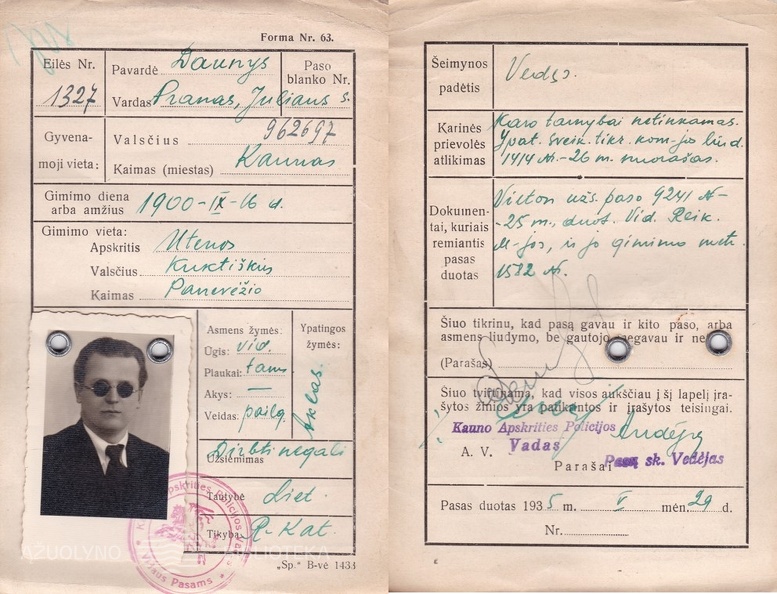 Forma Nr. 63.
Eilės Nr.
1327
Pavardė Daunys
Paso
blanko Nr.
Vardas Pranas, Juliaus s.
962697
Gyvena-
moji vieta:
Valsčius
Kaimas (miestas) Kaunas
Gimimo diena
arba amžius 1900-IX-16 d.
Gimimo vieta:
Apskritis Utenos
Valsčius Kuktiškių
Kaimas Panevėžio
Asmens žymės:
Ūgis: vid.
Plaukai: tams.
Akys: —
Veidas: pailg.
Ypatingos
žymės:
Aklas.
Dirbti negali
Užsiėmimas
Tautybė Liet.
Tikyba R. Kat.
Vidaus Pasams
AŽUOLYNO BIBLIOTEKA
„Sp." B-vė 1433
Šeimynos
padėtis
Vedęs.
Karinės
prievolės
atlikimas
Karo tarnybai netinkamas.
Ypat. sveik. tikr. kom-jo liud.
1414 N.-26 m. nuorašas.
Dokumen-
tai, kuriais
remiantis
pasas
duotas
Vieton užs. paso 9241 N-
-25 m., duot. Vid. Reik.
M-jos, ir jo gimimo metr.
1532 N.
Šiuo tikrinu, kad pasą gavau ir kito paso, arba
asmens liudymo, be gautojo negavau ir ne
(Parašas)
Šiuo tvirtinu, kad visos aukščiau į šį lapelį įra-
šytos žinios yra patikrintos ir įrašytos teisingai.
Kauno Apskrities Policijos
Vadas
A. V.
Parašai
Pasų sk. Vedėjas
Pasas duotas 1935 m. V mėn. 29 d.
Nr.
E